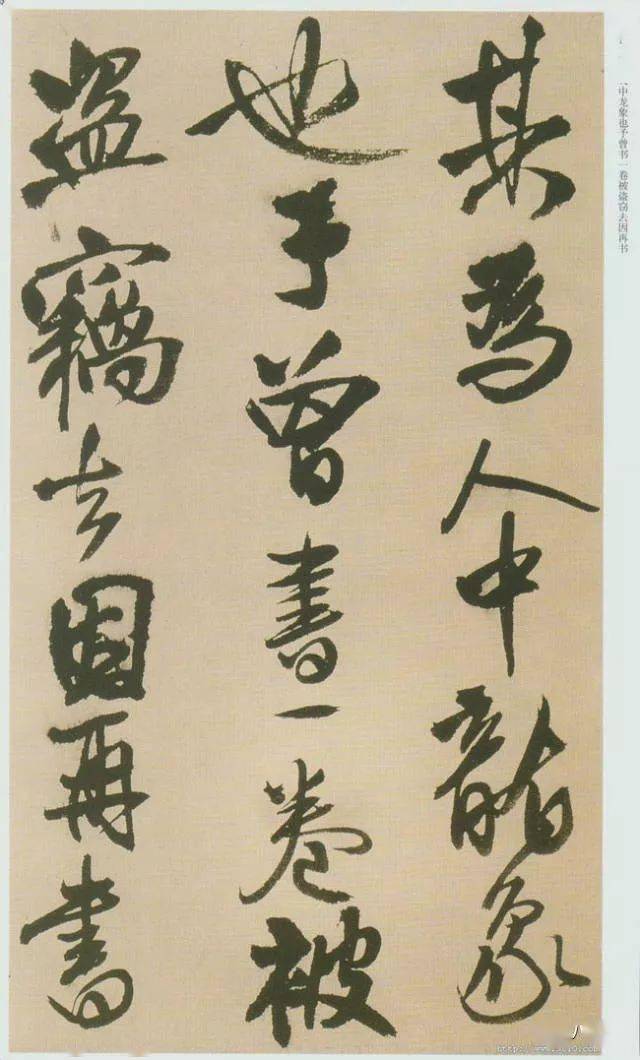 某爲人中龍象
也予曾書一卷被
盗竊去因再書
中龙象也予曾书一卷被盗窃去因再书